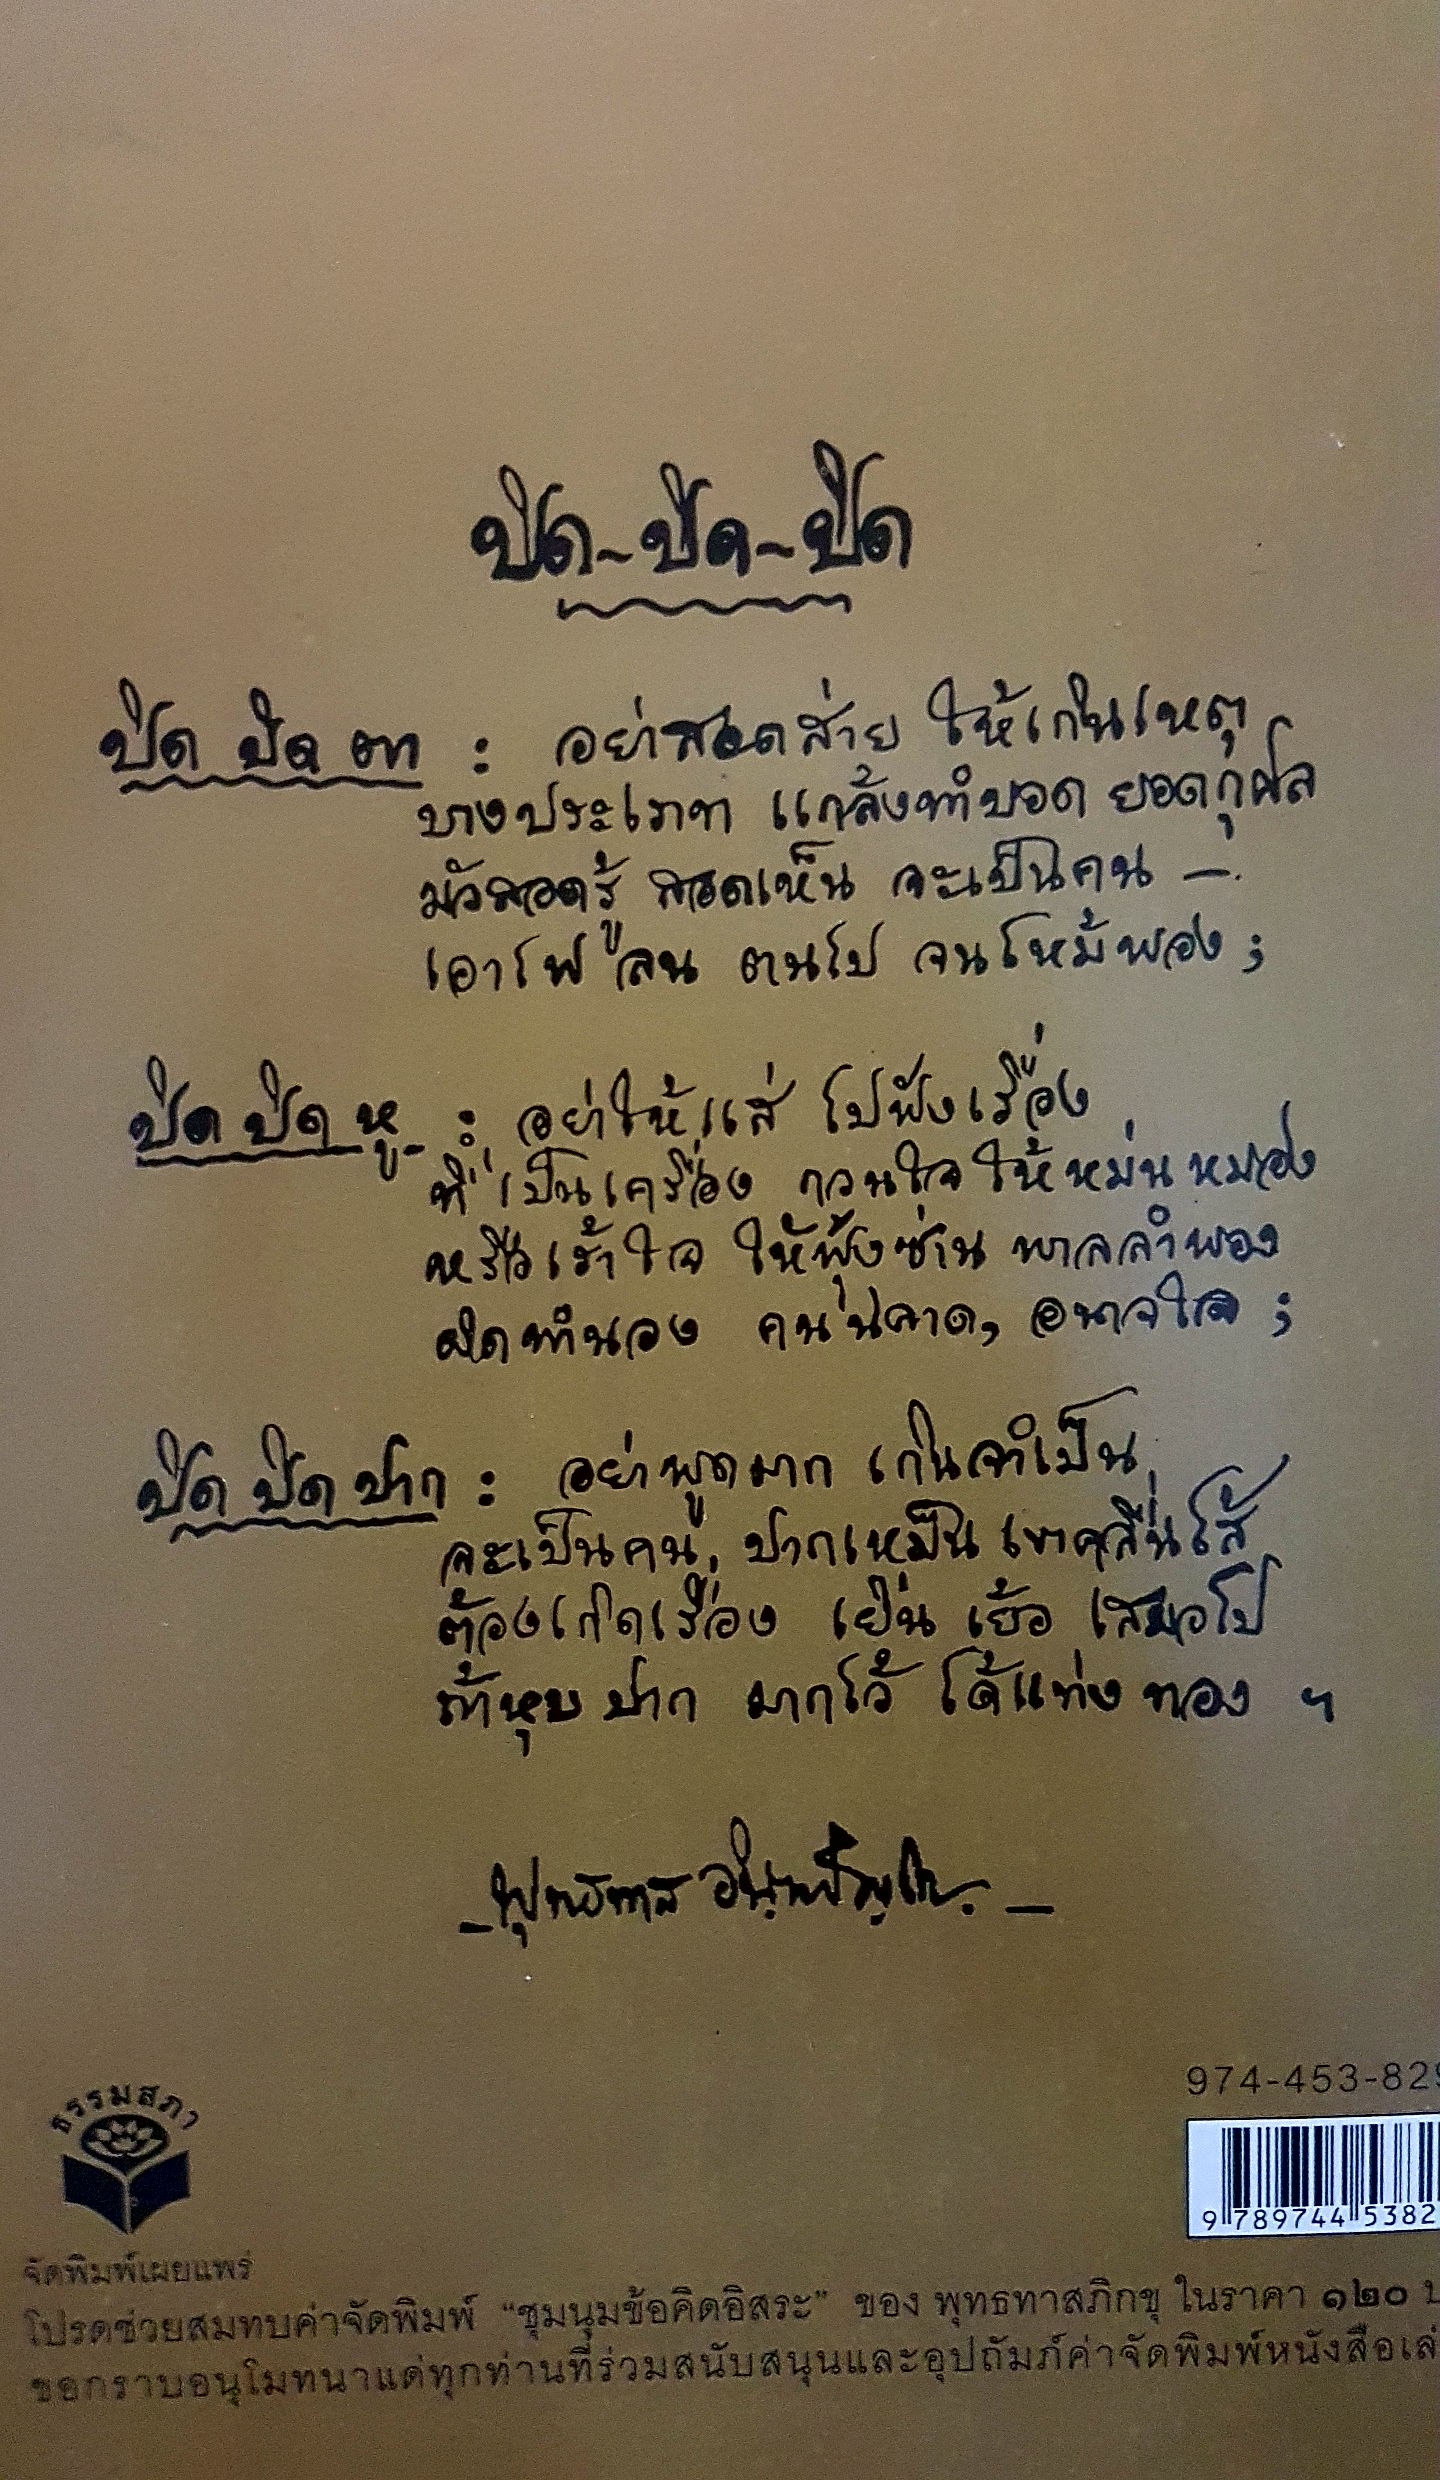 ปิด-ปิด-ปิด
ปิด ปิด ตา : อย่าสอดส่าย ให้เกินเหตุ
บางประเภท แกล้งทำบอด ยอดกุศล
มัวสอดรู้ สอดเห็น จะเป็นคน –
เอาไฟลน ตนไป จนไหม้พอง ;
ปิด ปิด หู : อย่าให้แส่ ไปฟังเรื่อง
ที่เป็นเครื่อง กวนใจ ให้หม่นหมอง
หรือเร้าใจ ให้ฟุ้งซ่าน พาลลำพอง
ผิดทำนอง คนฉลาด, อนาถใจ ;
ปิด ปิด ปาก : อย่าพูดมาก เกินจำเป็น
จะเป็นคน, ปากเหม็น เขาคลื่นไส้
ต้องเกิดเรื่อง เยิ่น เย้อ เสมอไป
ถ้าหุบปาก มากไว้ ได้แท่งทอง ฯ
– พุทธทาส อินทปัญโญ –
974-453-829
ธรรมสภา
9 789744 5382
จัดพิมพ์เผยแพร่
โปรดช่วยสมทบค่าจัดพิมพ์ “ชุมนุมข้อคิดอิสระ” ของ พุทธทาสภิกขุ ในราคา ๑๒๐ บ
ขอกราบอนุโมทนาแด่ทุกท่านที่ร่วมสนับสนุนและอุปถัมภ์ค่าจัดพิมพ์หนังสือเล่